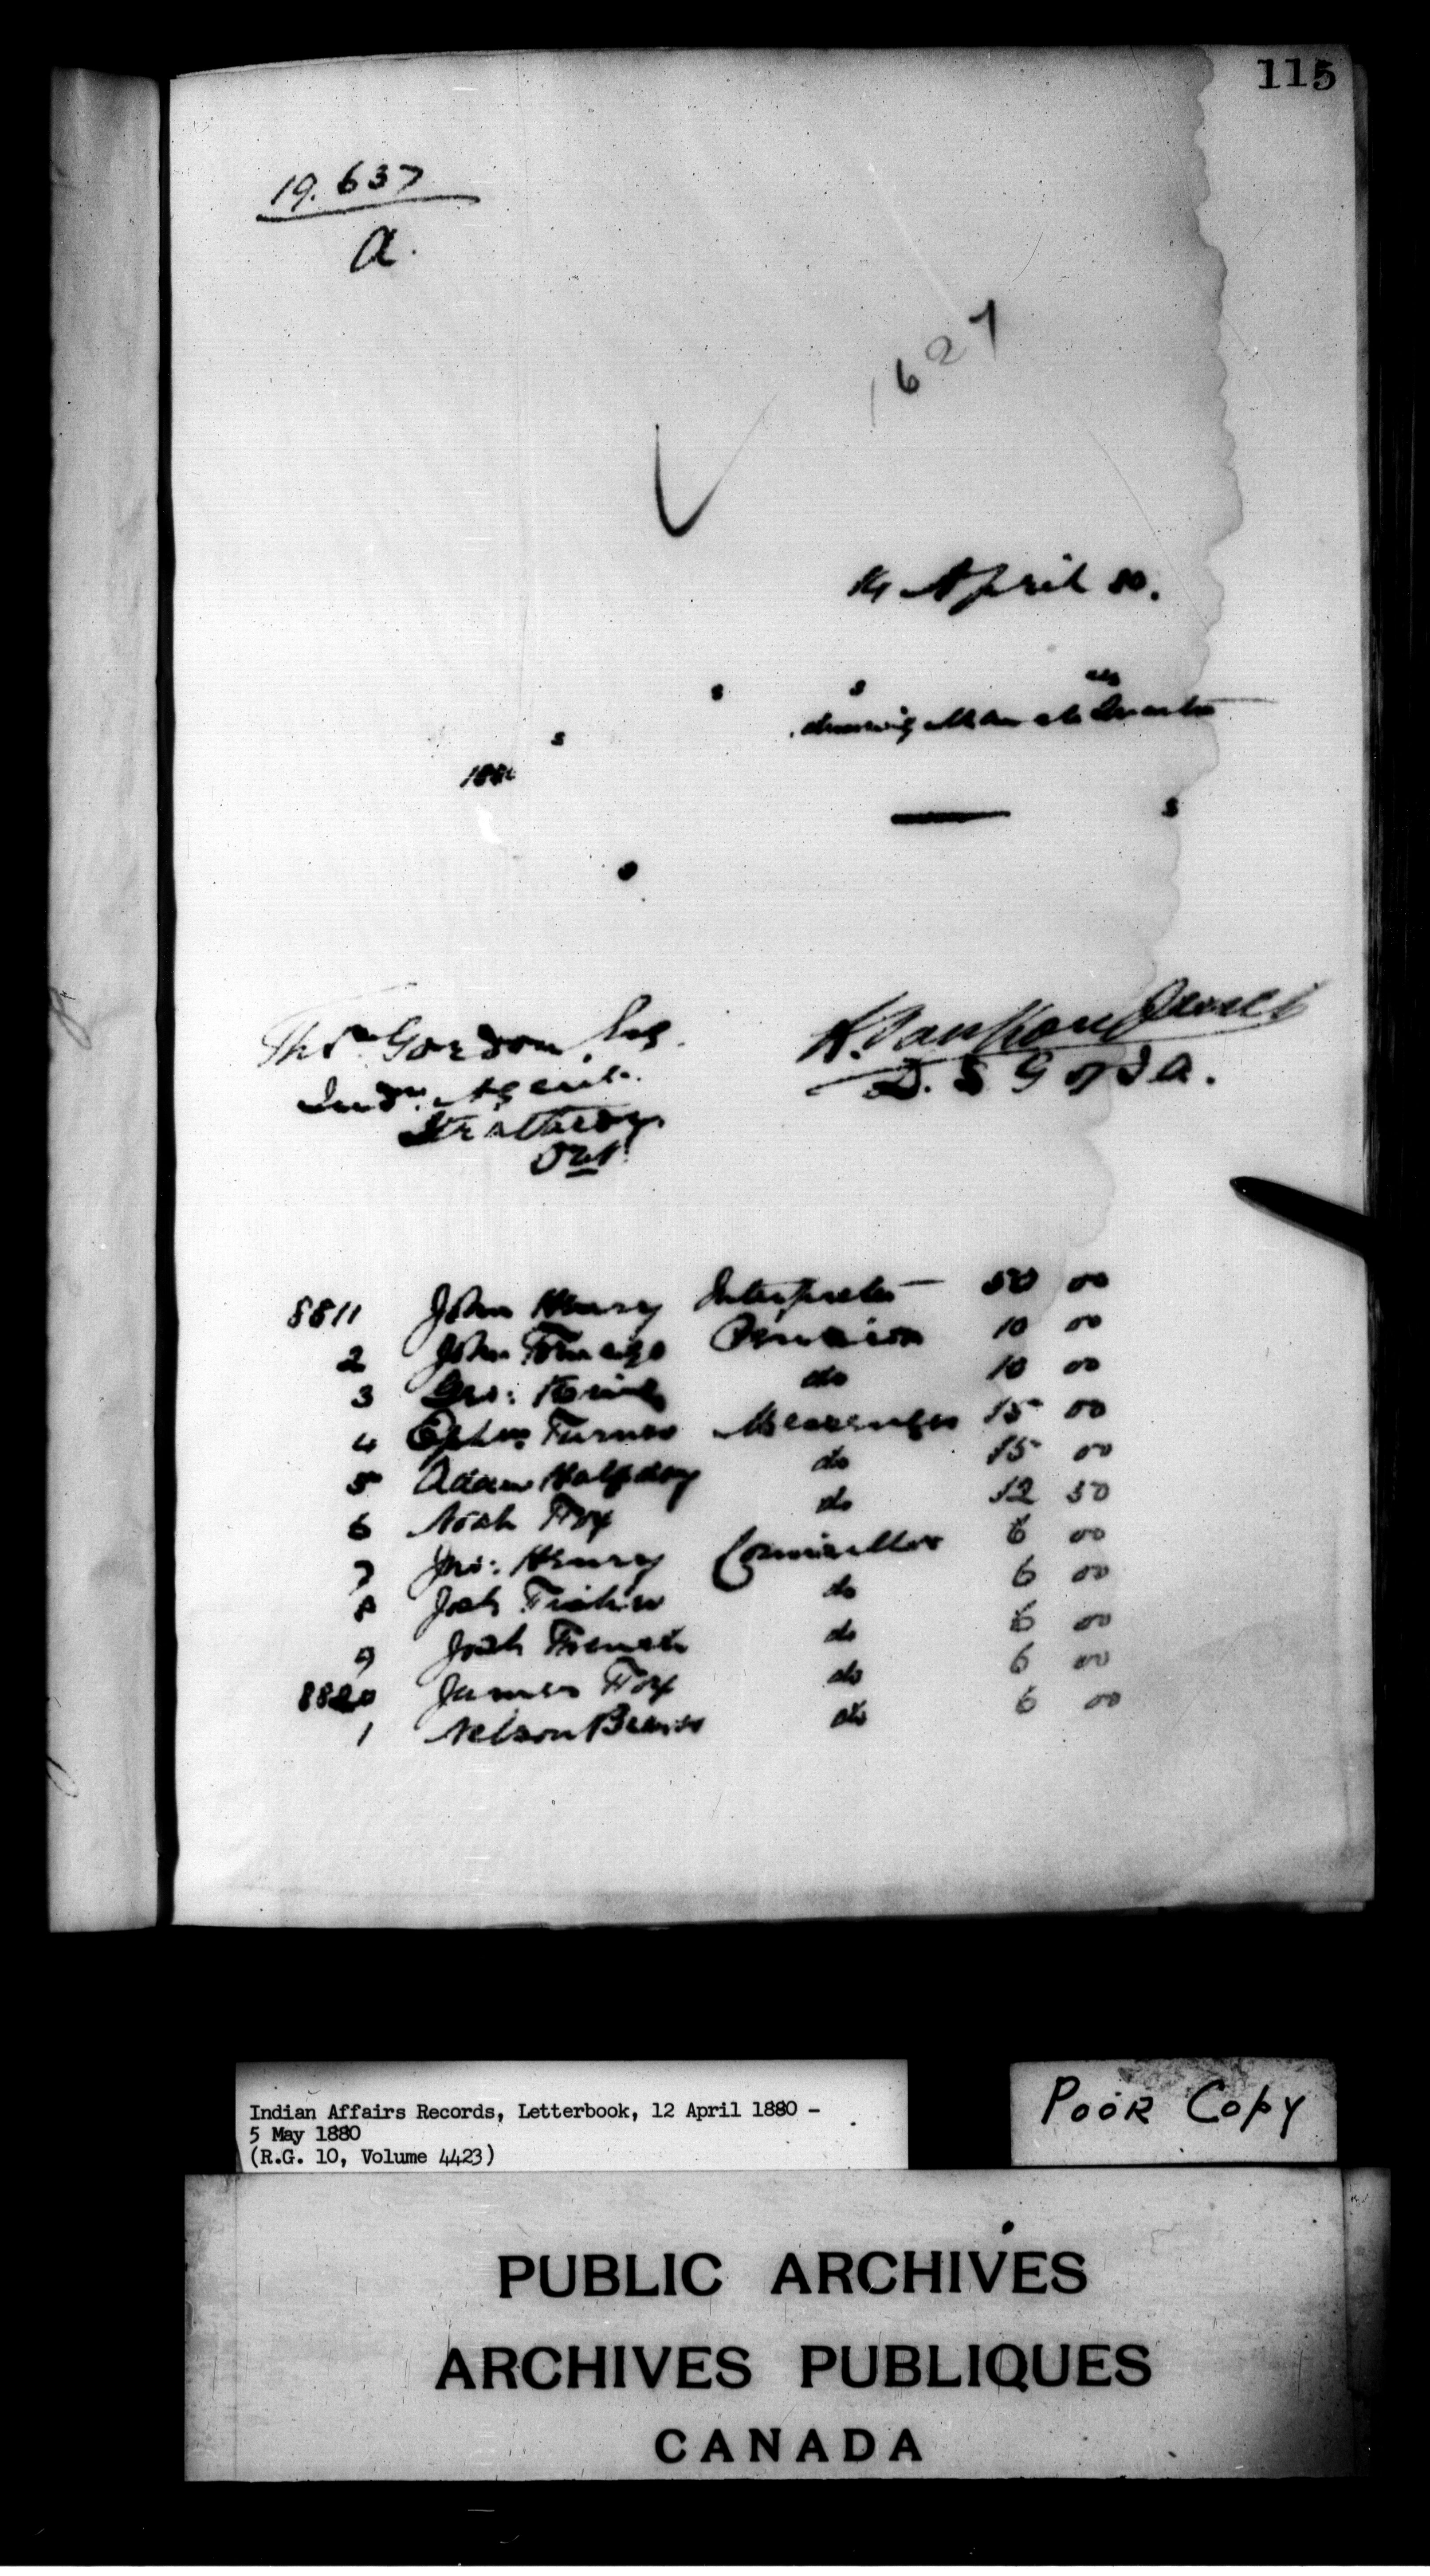 115
19.637
a.
1627
14 April 80.
s s
s
1880
s
Thos Gordon Esq.
Indn. Agent.
Strathroy
Ont.
L. VanKoughnet
D. S G of I A.
8811 John Henry Interpreter 50 00
2 John Pension 10 00
3 Geo: King do 10 00
4 Ephm Turner Messenger 15 00
5 Adam Halfday do 15 00
6 Noah Fox do 12 50
7 Jno: Henry Councillor 6 00
8 Josh Fisher do 6 00
9 Josh do 6 00
8820 James Fox do 6 00
1 Nelson Beaver do 6 00
Indian Affairs Records, Letterbook, 12 April 1880 -
5 May 1880
(R.G. 10, Volume 4423)
Poor Copy
PUBLIC ARCHIVES
ARCHIVES PUBLIQUES
CANADA